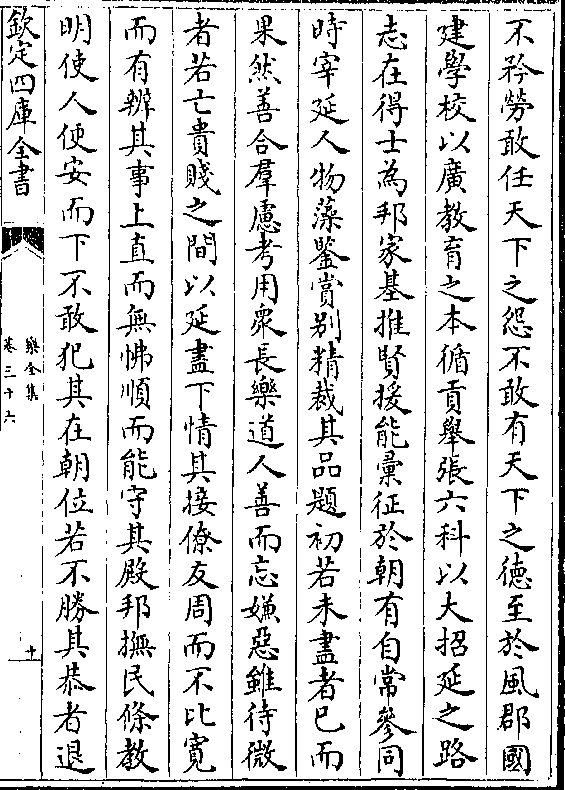 不矜勞敢任天下之怨不敢有天下之德至於風郡國
建學校以廣教育之本循貢舉張六科以大招延之路
志在得士為邦家基推賢援能彚征於朝有自常參同
時宰延人物藻鑒賞别精裁其品題初若未盡者已而
果然善合羣慮考用衆長樂道人善而忘嫌惡雖待微
者若亡貴賤之間以延盡下情其接僚友周而不比寛
而有辨其事上直而無怫順而能守其殿邦撫民條教
明使人便安而下不敢犯其在朝位若不勝其恭者退
欽定四庫全書
樂全集
卷三十六
十